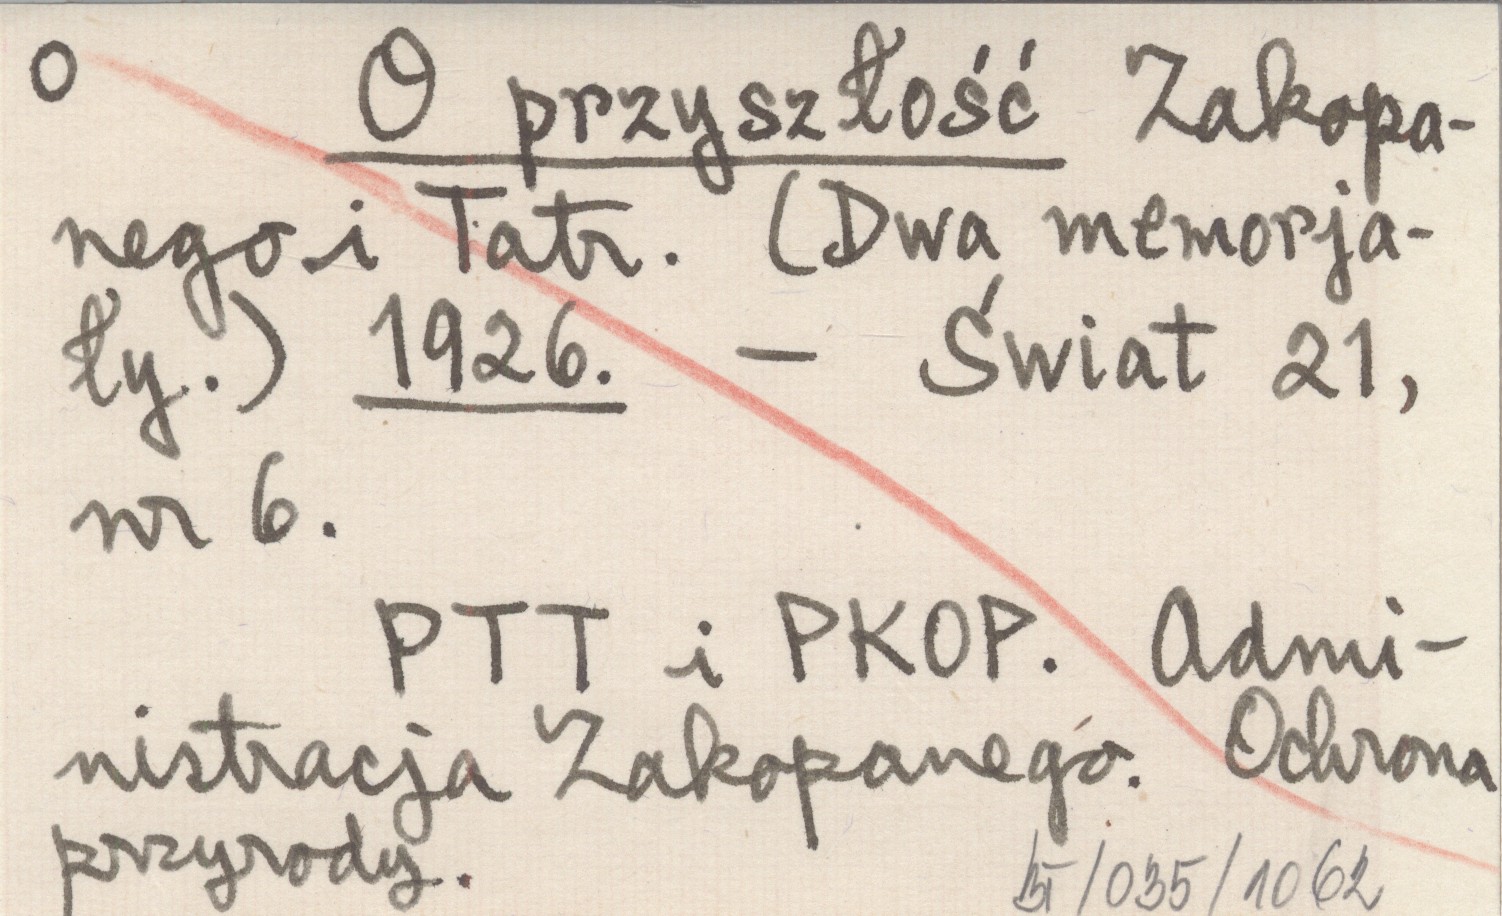 o O przyszłość Zakopa-
nego i Tatr. (Dwa memorja-
ły.) 1926. — Świat 21,
nr 6.
PTT i PKOP. Admi-
nistracja Zakopanego. Ochrona
przyrody.
/035/1062